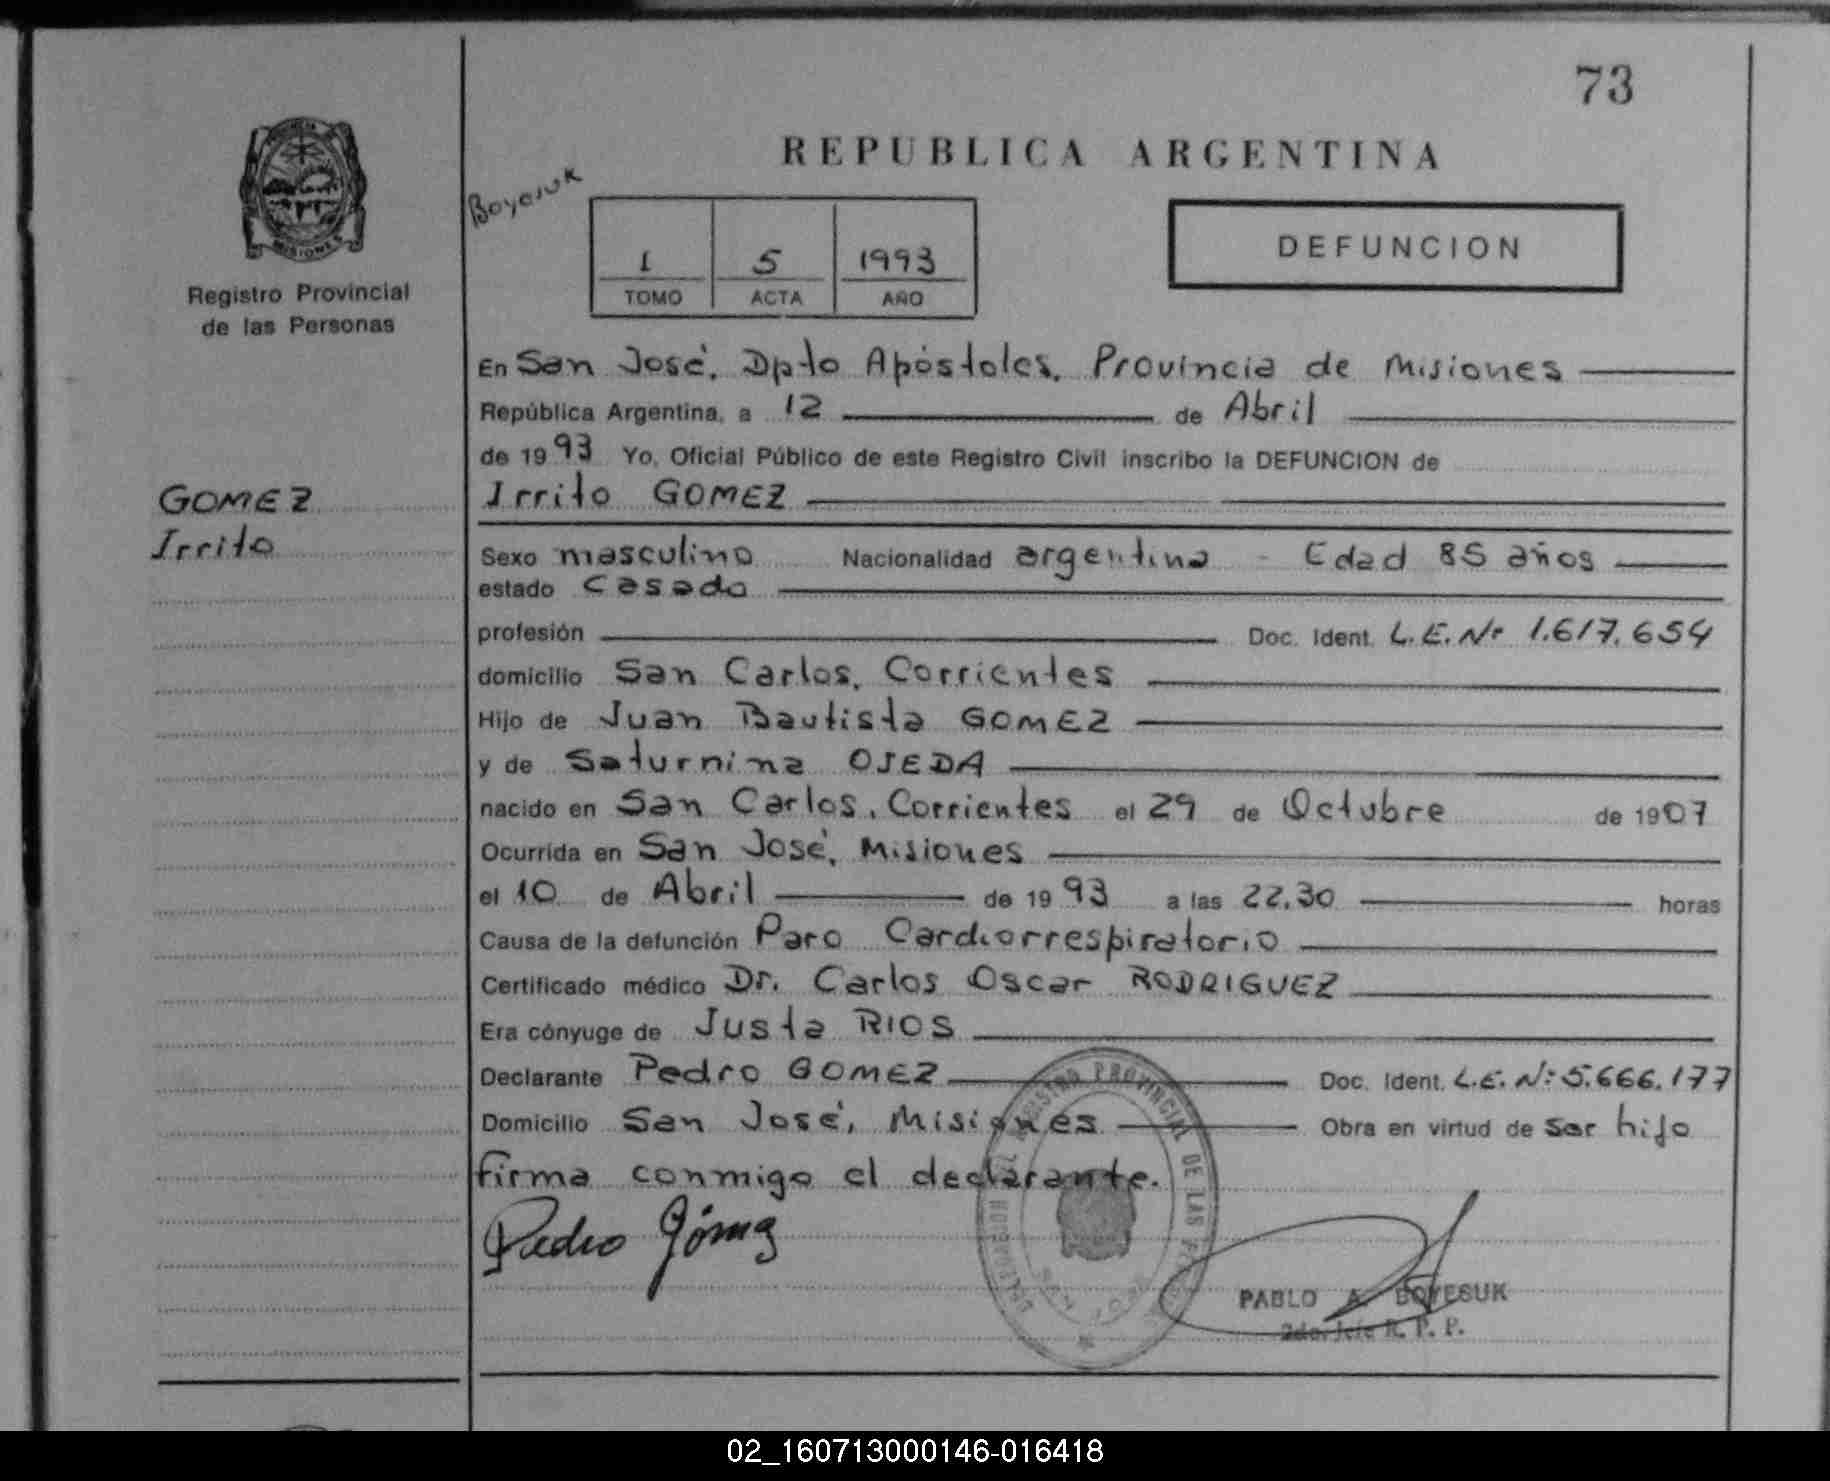 73
REPUBLICA ARGENTINA
Boyesuk
MISIONES
Registro Provincial
de las Personas
1 5 1993
TOMO ACTA AÑO
DEFUNCION
En San José, Dpto Apóstoles, Provincia de Misiones
República Argentina, a 12 de Abril
de 1993 Yo, Oficial Público de este Registro Civil inscribo la DEFUNCION de
Irrito GOMEZ
GOMEZ
Irrito
Sexo masculino Nacionalidad argentina - Edad 85 años
estado casado
profesión Doc. Ident. L.E. Nº 1.617.654
domicilio San Carlos, Corrientes
Hijo de Juan Bautista GOMEZ
y de Saturnina OJEDA
nacido en San Carlos, Corrientes el 29 de Octubre de 1907
Ocurrida en San José, Misiones
el 10 de Abril de 1993 a las 22,30 horas
Causa de la defunción Paro Cardiorrespiratorio
Certificado médico Dr. Carlos Oscar RODRIGUEZ
Era cónyuge de Justa RIOS
Declarante Pedro GOMEZ Doc. Ident. L.E. Nº 5.666.177
Domicilio San José, Misiones Obra en virtud de ser hijo
firma conmigo el declarante.
Pedro Gómez
REGISTRO PROVINCIAL DE LAS
PABLO A. BOYESUK
2do. Jefe R. P. P.
02_160713000146-016418